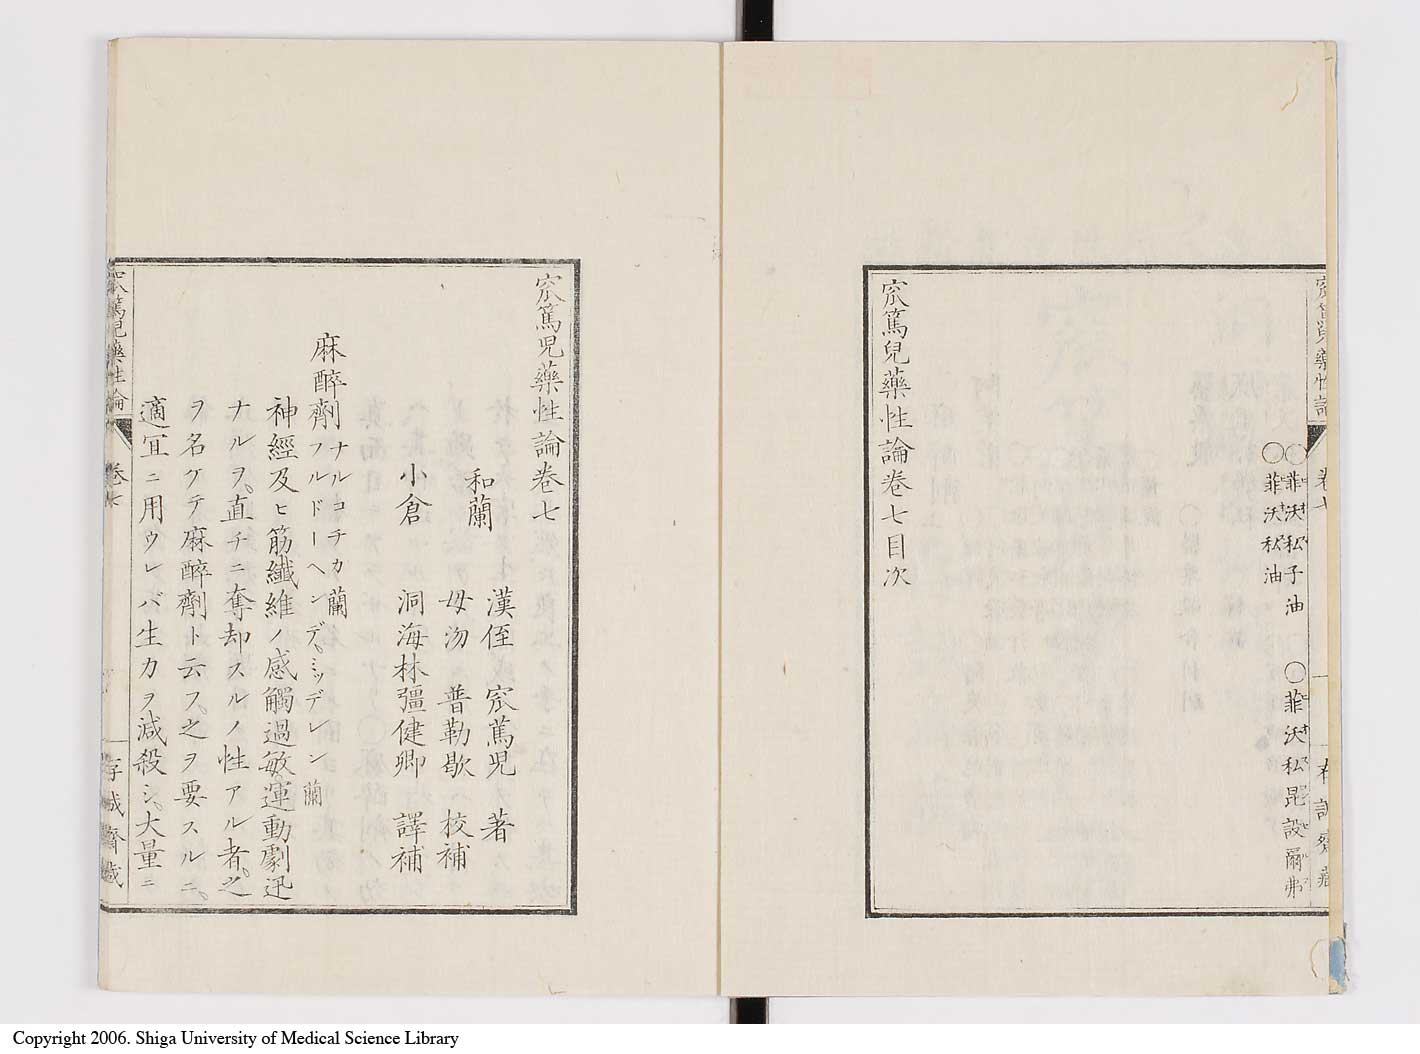 〇菲沃私子油 〇菲沃私昆設爾弗
〇菲沃私油
窊篤兒藥性論卷七目次
窊篤児藥性論卷七
和蘭 漢侄 窊篤児 著
母沕 普勒歇 校補
小倉 洞海林彊健卿 譯補
麻醉劑 ナルコチカ蘭 フルドーヘンデ、ミッデレン蘭
神經及ヒ筋纖維ノ感觸過敏運動劇迅
ナルヲ、直チニ奪却スルノ性アル者、之
ヲ名グテ麻醉劑ト云フ、之ヲ要スルニ、
適宜ニ用ウレバ生力ヲ減殺シ、大量ニ
窊篤児藥性論 卷七
Copyright 2006. Shiga University of Medical Science Library